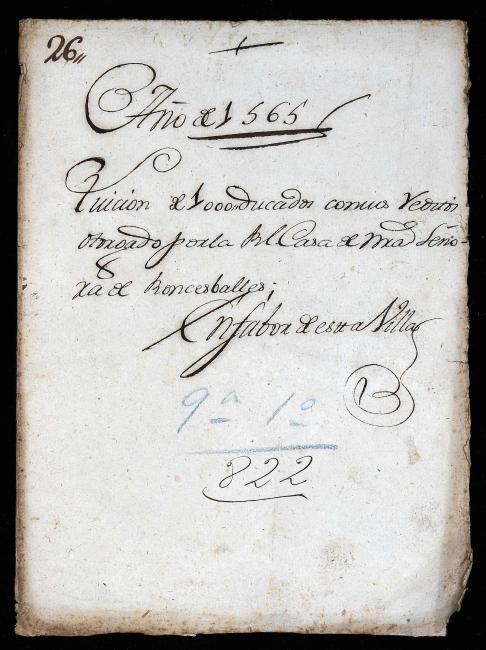 26,,
+
Año de 1565
Luicion de 1000 ducados con sus reditos
otorgado por la Rl Casa de Nra Seño-
ra de Roncesballes;
En fabor de esta Villa
9ª 1º
822